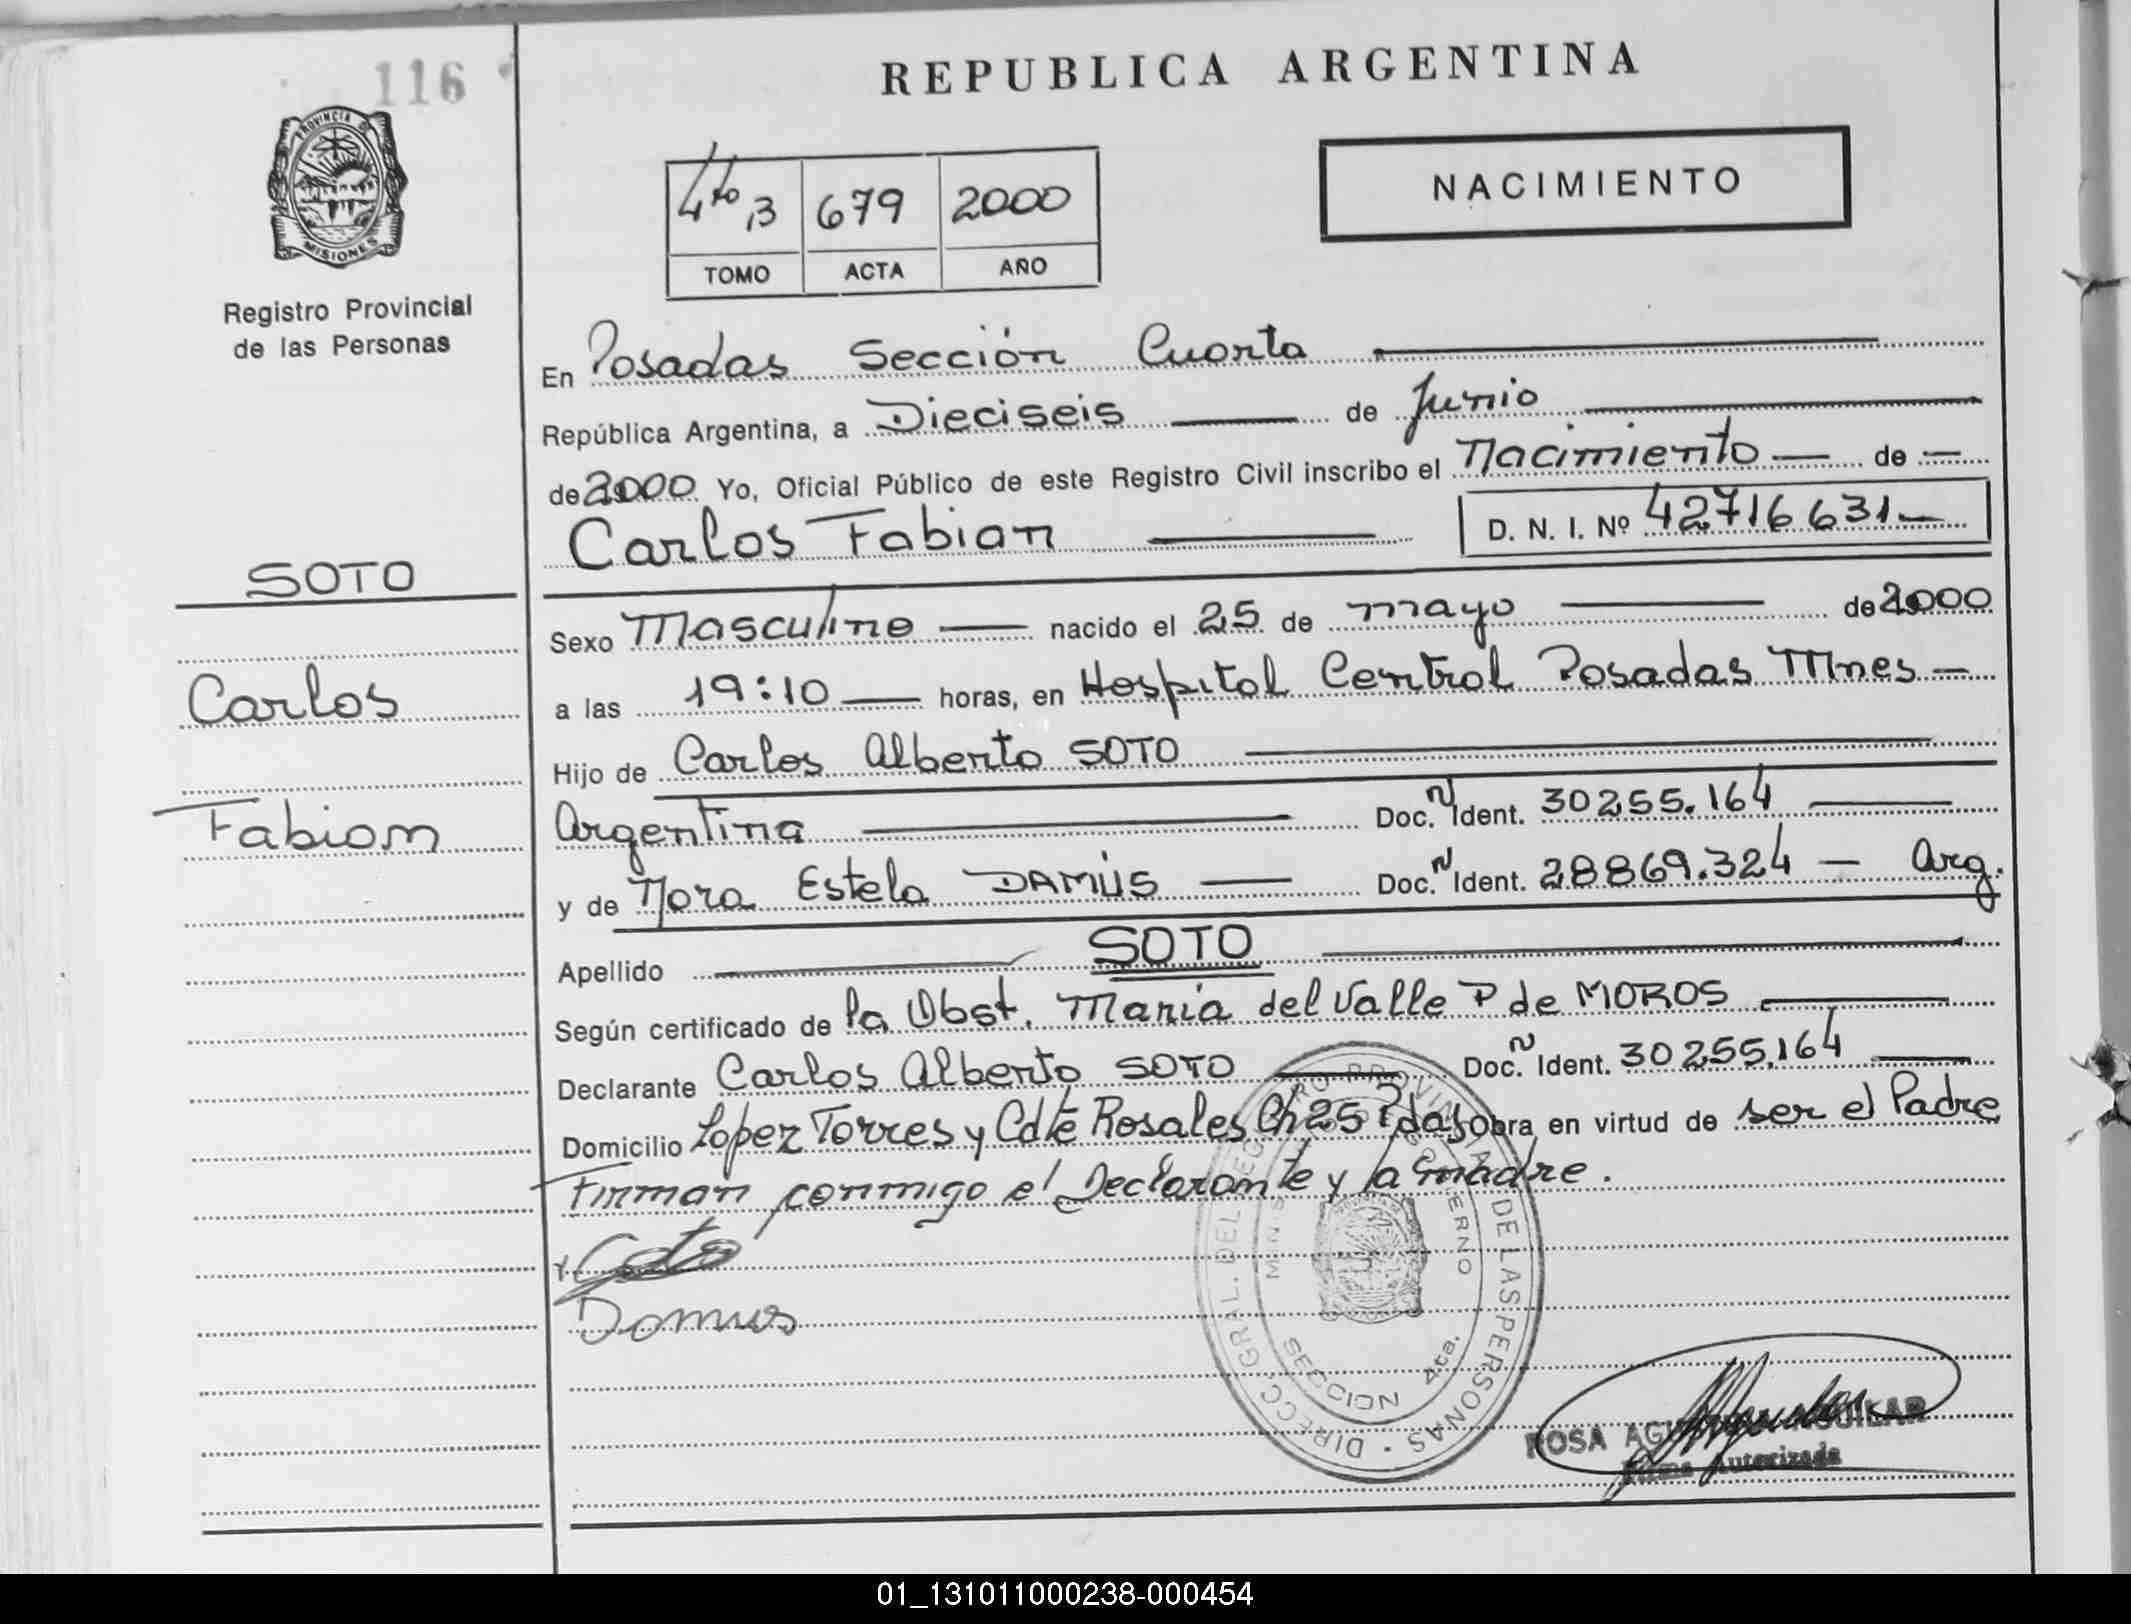 116
REPUBLICA ARGENTINA
PROVINCIA DE
MISIONES
Registro Provincial
de las Personas
4to 3 679 2000
TOMO ACTA AÑO
NACIMIENTO
En Posadas Sección Cuarta
República Argentina, a Dieciseis de Junio
de 2000 Yo, Oficial Público de este Registro Civil inscribo el Nacimiento de
Carlos Fabian D. N. I. Nº 42716631
SOTO
Carlos
Fabian
Sexo Masculino nacido el 25 de mayo de 2000
a las 19:10 horas, en Hospital Central Posadas Mnes
Hijo de Carlos Alberto SOTO
Argentina Doc. N Ident. 30255.164
y de Nora Estela DAMUS Doc. N Ident. 28869.324 - Arg.
Apellido SOTO
Según certificado de la Obst. Maria del Valle P de MOROS
Declarante Carlos Alberto SOTO Doc. N Ident. 30255.164
Domicilio Lopez Torres y Cdte Rosales Ch 25 Pdas obra en virtud de ser el Padre
Firman conmigo el Declarante y la madre.
DIRECC. GRAL. DEL REGISTRO PROVINCIAL DE LAS PERSONAS
SECCION 4ta.
Damus
ROSA AGUILAR
Firma Autorizada
01_131011000238-000454